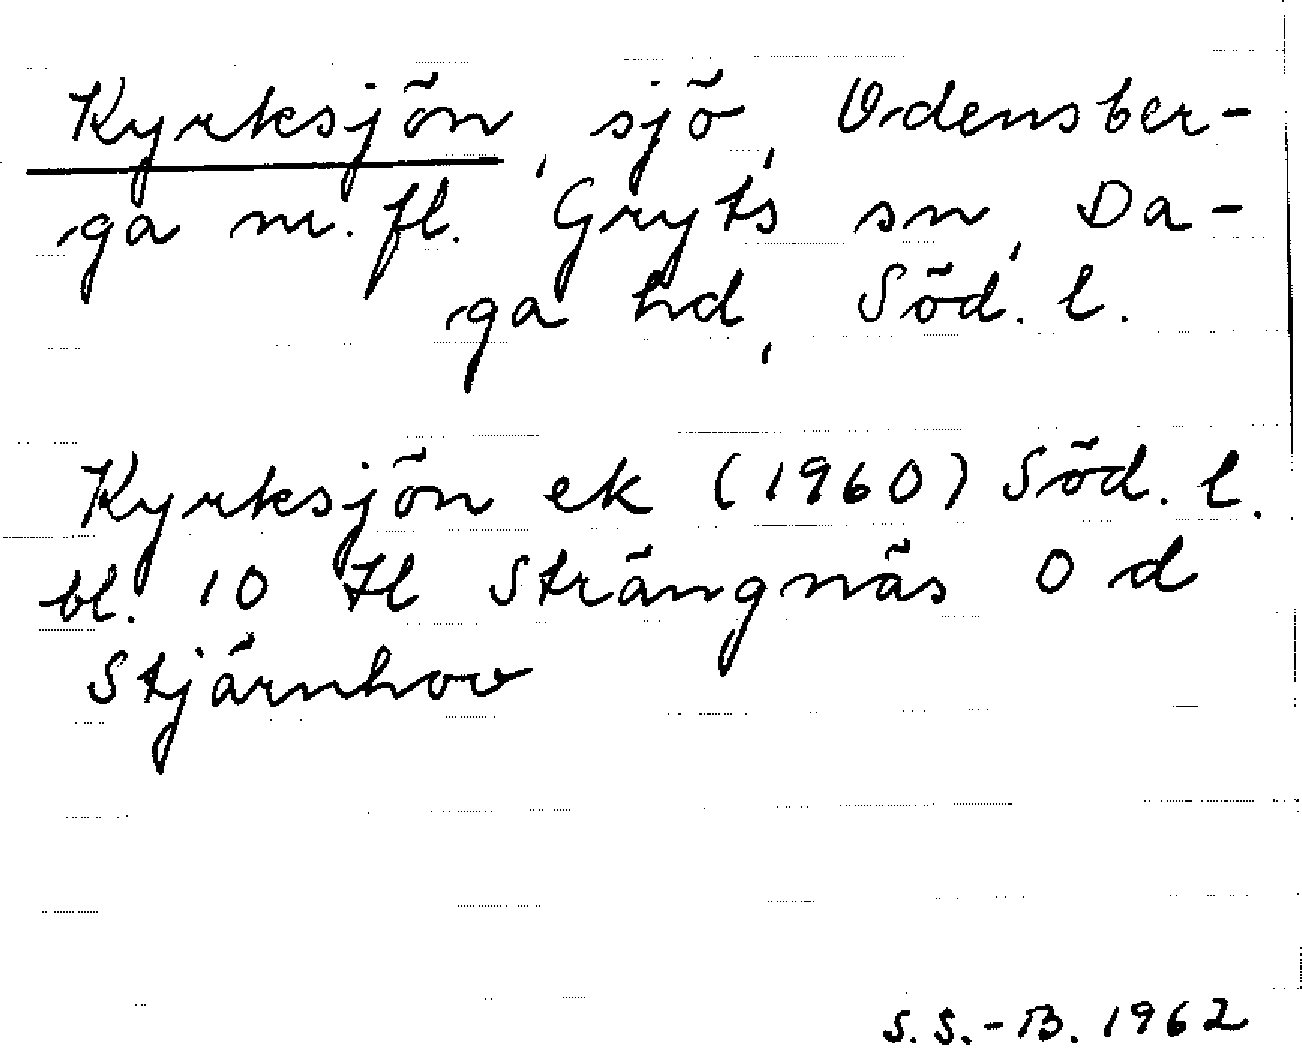 Kyrksjön, sjö, Odensber-
ga m.fl. Gryts sn, Da-
ga hd, Söd. l.
Kyrksjön ek (1960) Söd. l.
bl. 10 Hl Strängnäs O d
Stjärnhov
S.S.-B. 1962